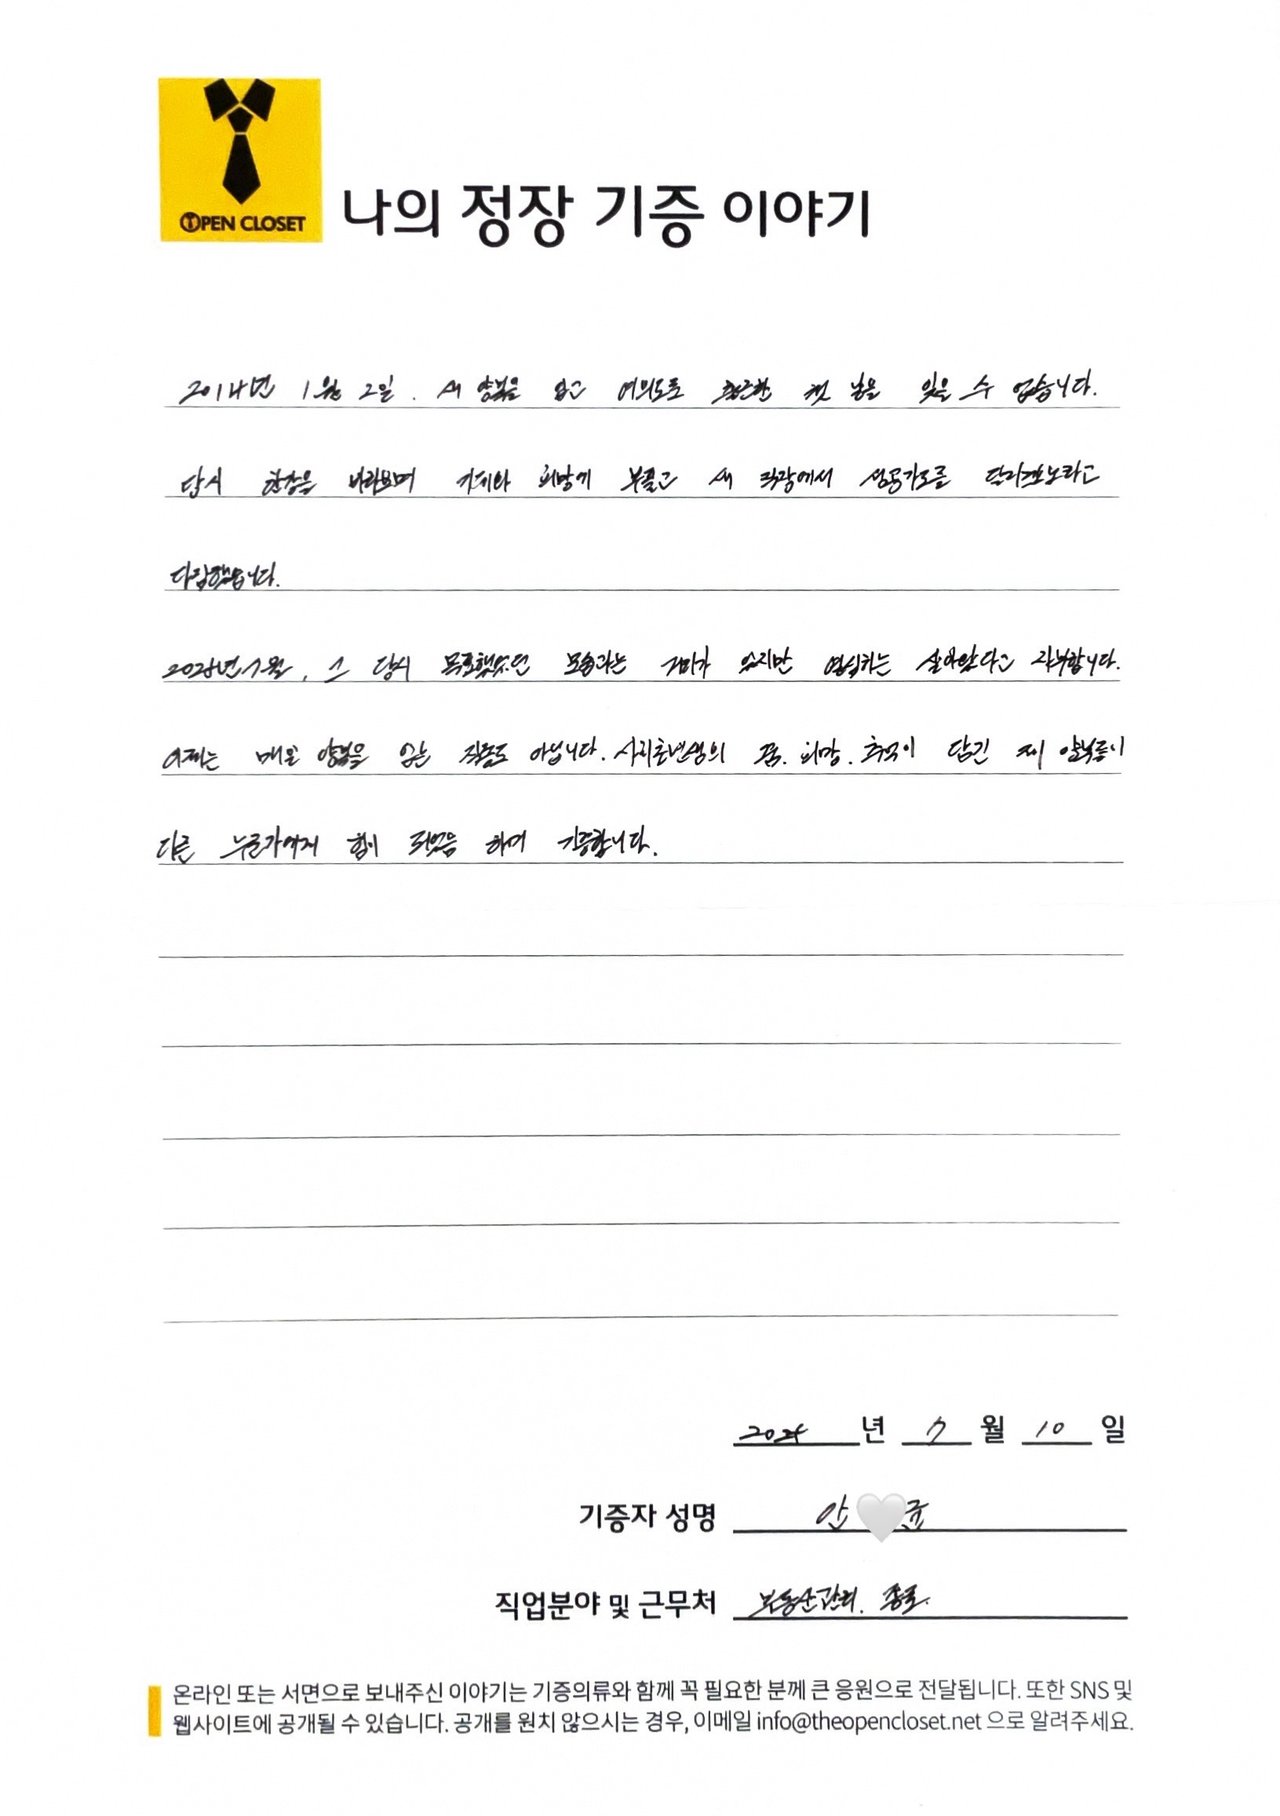 OPEN CLOSET
나의 정장 기증 이야기
2014년 1월 2일. 새 양복을 입고 여의도로 출근한 첫 날을 잊을 수 없습니다.
당시 한강을 바라보며 기대와 희망에 부풀고 새 직장에서 성공가도를 달리겠노라고
다짐했습니다.
7월, 그 당시 목표했었던 모습과는 거리가 있지만 열심히는 살아왔다고 자부합니다.
이제는 매일 양복을 입는 직종도 아닙니다. 사회초년생의 꿈, 희망, 추억이 담긴 제 양복들이
다른 누군가에게 힘이 되었음 하여 기증합니다.
년 7 월 10 일
기증자 성명 안 균
직업분야 및 근무처 부동산관리. 종로.
온라인 또는 서면으로 보내주신 이야기는 기증의류와 함께 꼭 필요한 분께 큰 응원으로 전달됩니다. 또한 SNS 및
웹사이트에 공개될 수 있습니다. 공개를 원치 않으시는 경우, 이메일 info@theopencloset.net 으로 알려주세요.